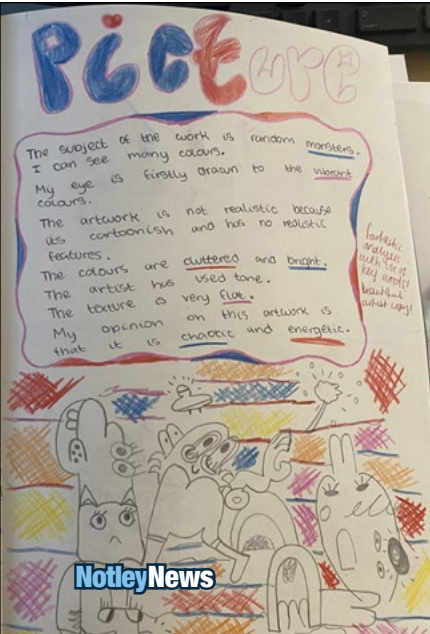 Picture
The subject of the work is random monsters.
I can see many colours.
My eye is firstly drawn to the vibrant
colours.
The artwork is not realistic because
its cartoonish and has no realistic
features.
The colours are cluttered and bright.
The artist has used tone.
The texture is very flat.
My opinion on this artwork is
that it is chaotic and energetic.
fantastic
analysis
with use of
key words!
beautiful
artist copy!
NotleyNews